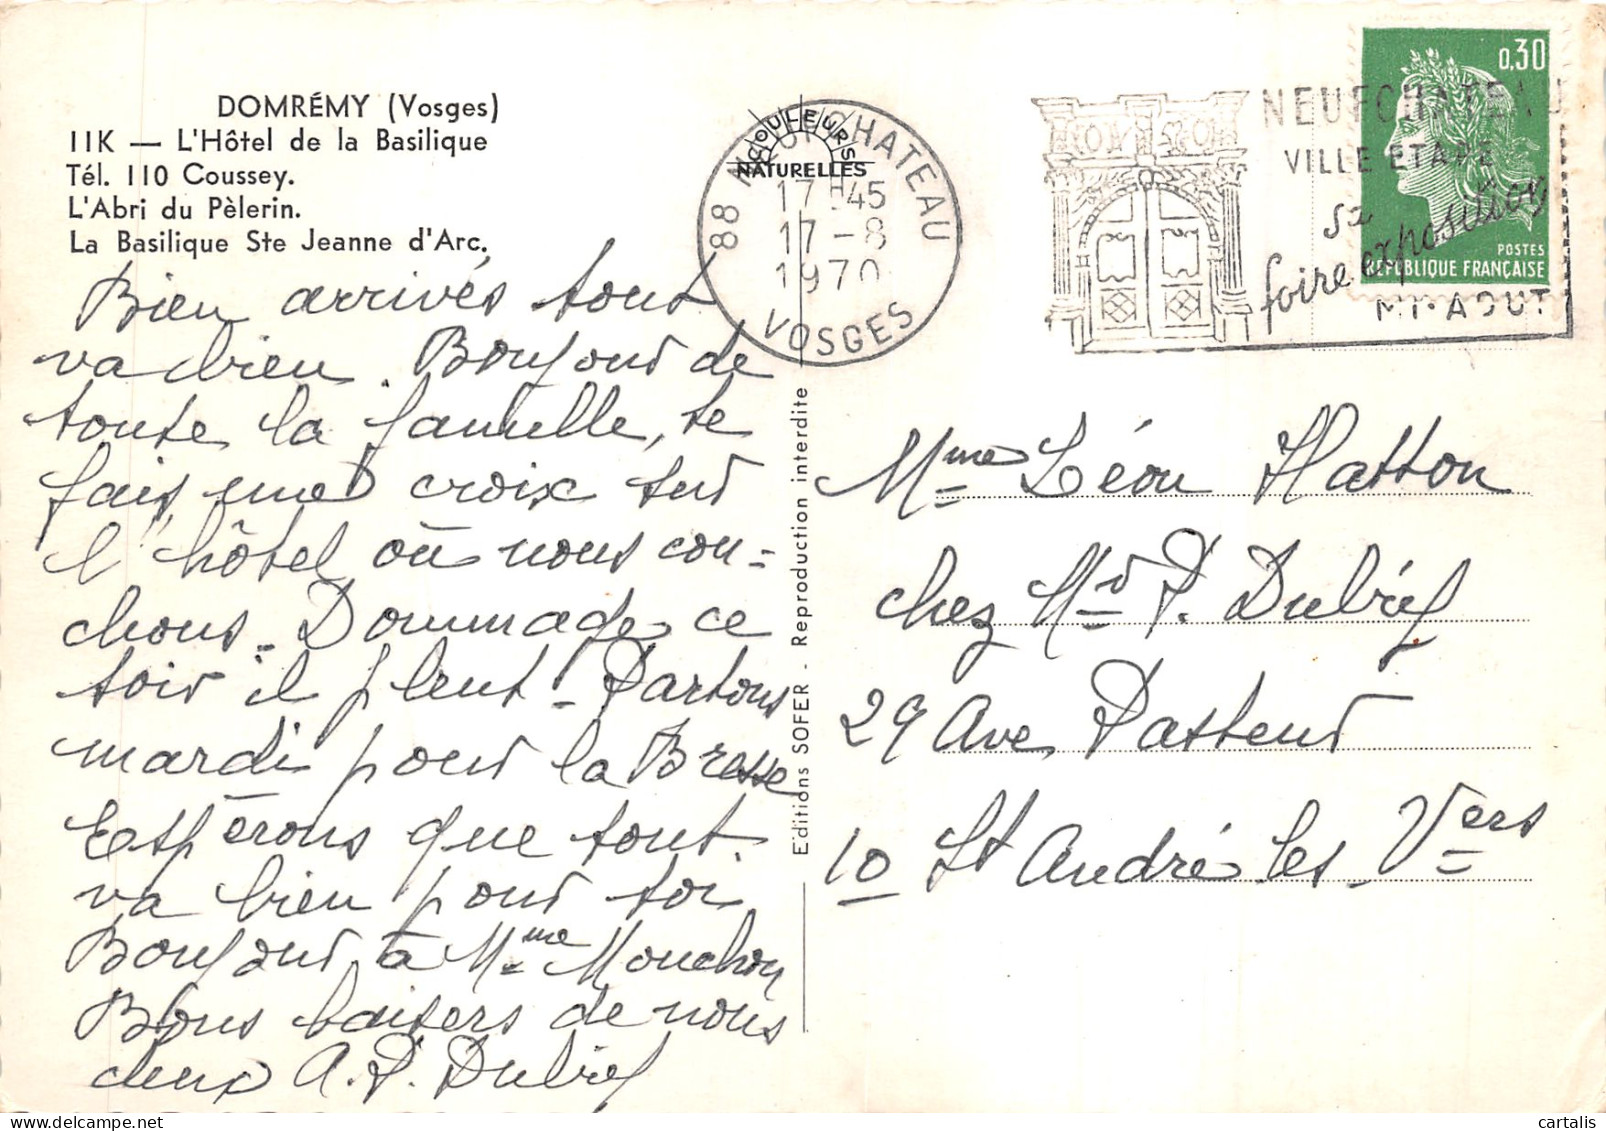 DOMRÉMY (Vosges)
IIK — L'Hôtel de la Basilique
Tél. 110 Coussey.
L'Abri du Pèlerin.
La Basilique Ste Jeanne d'Arc.
Bien arrivés tout
va bien. Bonjour de
toute la famille, te
fais une croix sur
l'hôtel où nous cou=
chons. Dommage ce
soir il pleut - Partons
mardi pour la Bresse
Espérons que tout
va bien pour toi
Bonjour à Mme Mouchon
Bons baisers de nous
deux A. P. Dubref
COULEURS
NATURELLES
88 NEUFCHATEAU
17H45
17-8
1970
VOSGES
Editions SOFER - Reproduction interdite
NEUFCHATEAU
VILLE ETAPE
sa
foire exposition
MI-AOUT
0,30
POSTES
RÉPUBLIQUE FRANÇAISE
Mme Léon Hatton
chez Mr P. Dubref
29 Ave Pasteur
10 St André les Vers
cartalis delcampe.net